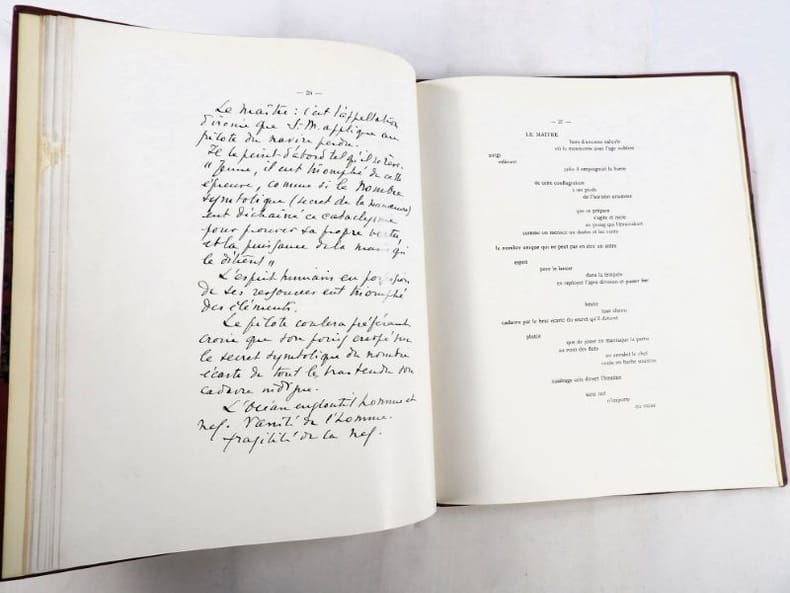 — 20 —
Le Maître : c'est l'appellation
d'ironie que S. M. applique au
pilote du navire perdu.
Il le peint d'abord tel qu'il se rêve.
" Jeune, il eut triomphé de cette
épreuve, comme si le Nombre
symbolique (secret de la manœuvre)
eut déchaîné ce cataclysme
pour prouver sa propre vertu,
et la puissance de la main qui
le détient "
L'esprit humain en possession
de ses ressources eut triomphé
des éléments.
Le pilote coulera préférant
croire que son poing crispé sur
le secret symbolique du nombre
écarte de tout le bras tendu son
cadavre
L'Océan engloutit homme et
nef. Vanité de l'homme.
fragilité de la nef.
LE MAITRE
hors d'anciens calculs
où la manœuvre avec l'âge oubliée
surgi
inférant
jadis il empoignait la barre
de cette conflagration
à ses pieds
de l'horizon unanime
que se prépare
s'agite et mêle
au poing qui l'étreindrait
comme on menace un destin et les vents
le nombre unique qui ne peut pas en être un autre
esprit
pour le lancer
dans la tempête
en reployer l'âpre division et passer fier
hésite
tout chenu
cadavre par le bras écarté du secret qu'il détient
plutôt
que de jouer en maniaque la partie
au nom des flots
un envahit le chef
coule en barbe soumise
naufrage cela direct l'homme
sans nef
n'importe
où vaine